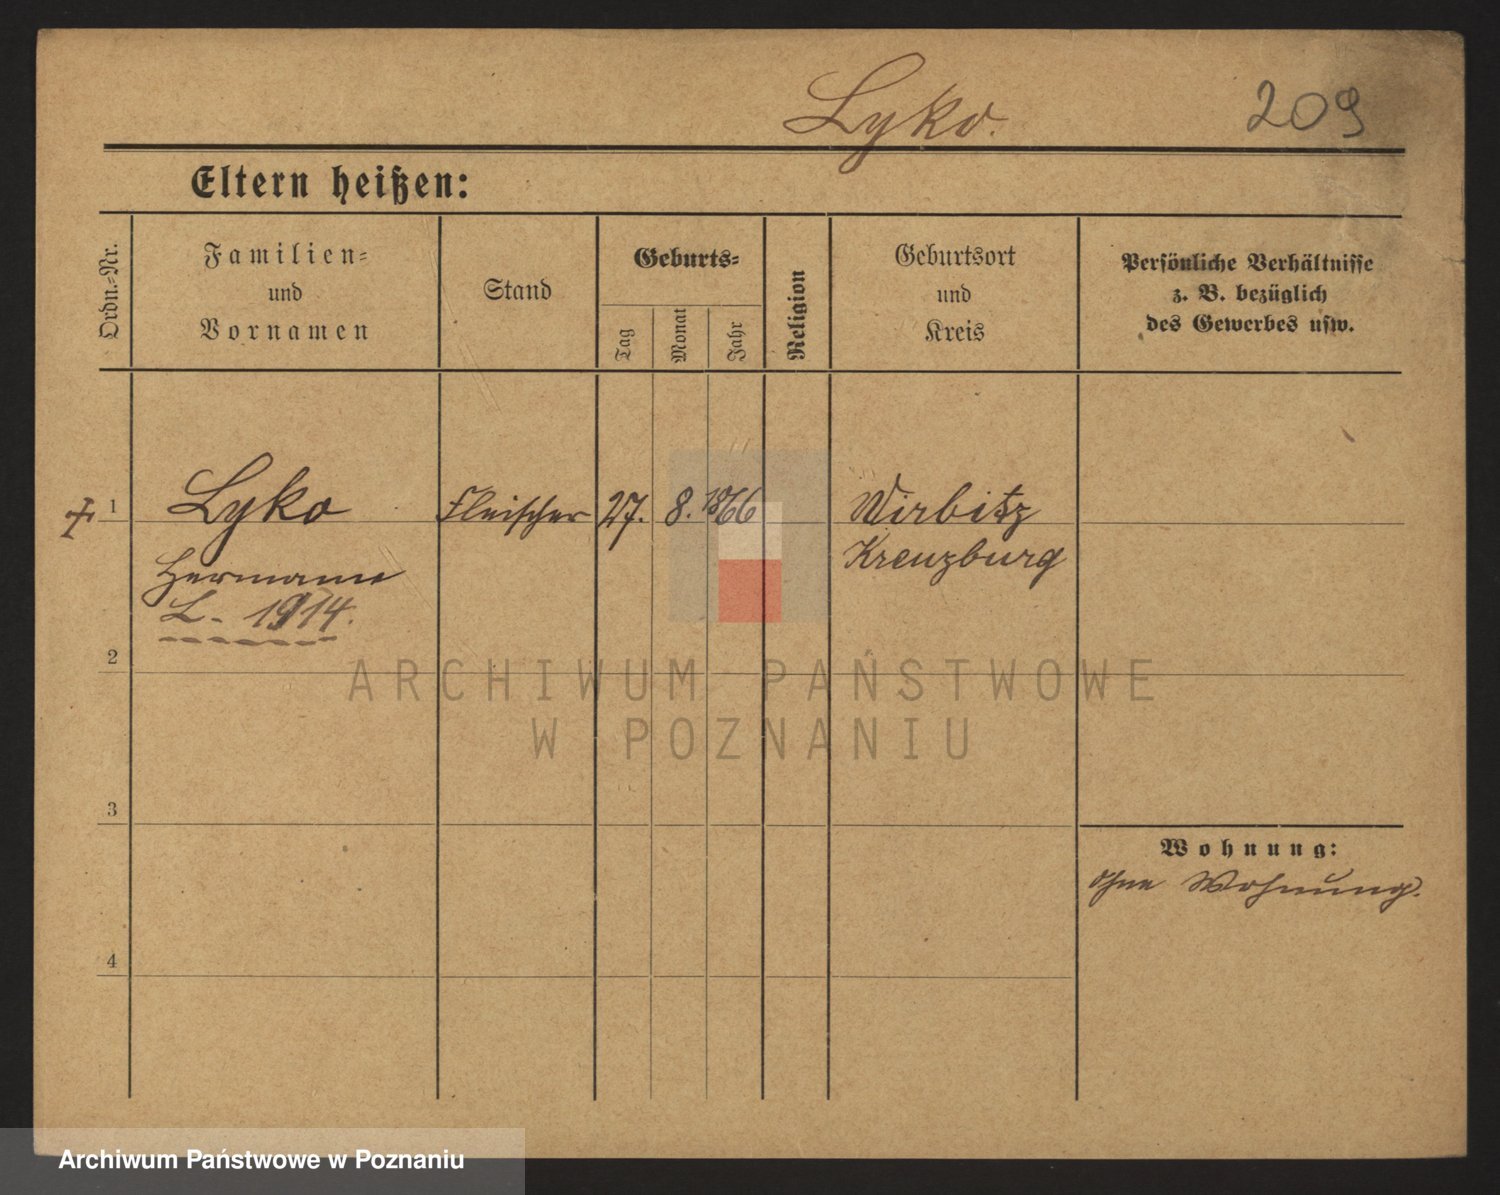 Lyko.
209
Eltern heißen:
Ordn.=Nr.
Familien=
und
Vornamen
Stand
Geburts=
Tag
Monat
Jahr
Religion
Geburtsort
und
Kreis
Persönliche Verhältnisse
z. B. bezüglich
des Gewerbes usw.
1
Lyko
Fleischer
27.
8.
1866
Wirbitz
Kreuzburg
Hermann
L. 1914.
2
ARCHIWUM PAŃSTWOWE
W POZNANIU
3
Wohnung:
ohne Wohnung.
4
Archiwum Państwowe w Poznaniu